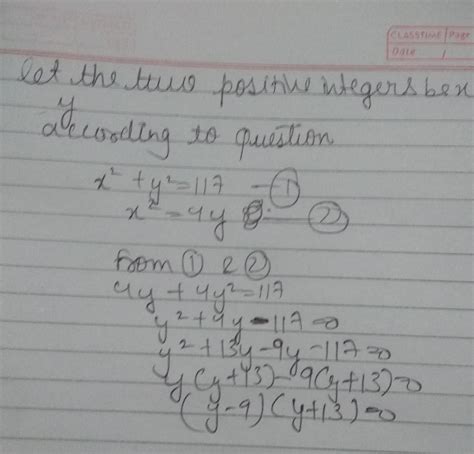 CLASSTIME Page
Date /
let the two positive integers be x
y
according to question
x² + y² = 117 - ①
x² = 4y - ②
from ① & ②
4y + 4y² = 117
y² + 4y - 117 = 0
y² + 13y - 9y - 117 = 0
y(y + 13) - 9(y + 13) = 0
(y - 9) (y + 13) = 0